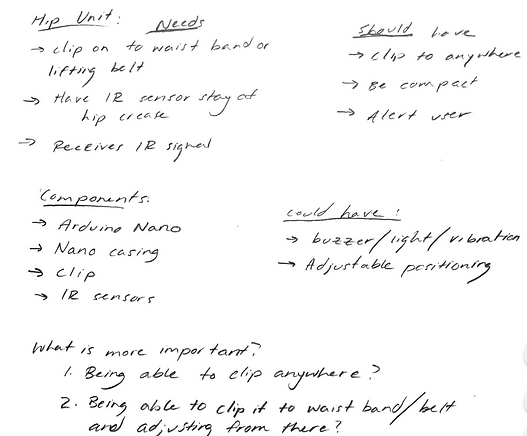 Hip Unit: Needs
→ clip on to waist band or
lifting belt
→ Have IR sensor stay at
hip crease
→ Receives IR signal
Should have
→ clip to anywhere
→ Be compact
→ Alert user
Components:
→ Arduino Nano
→ Nano casing
→ clip
→ IR sensors
could have:
→ buzzer/light/vibration
→ Adjustable positioning
What is more important?
1. Being able to clip anywhere?
2. Being able to clip it to waist band/belt
and adjusting from there?